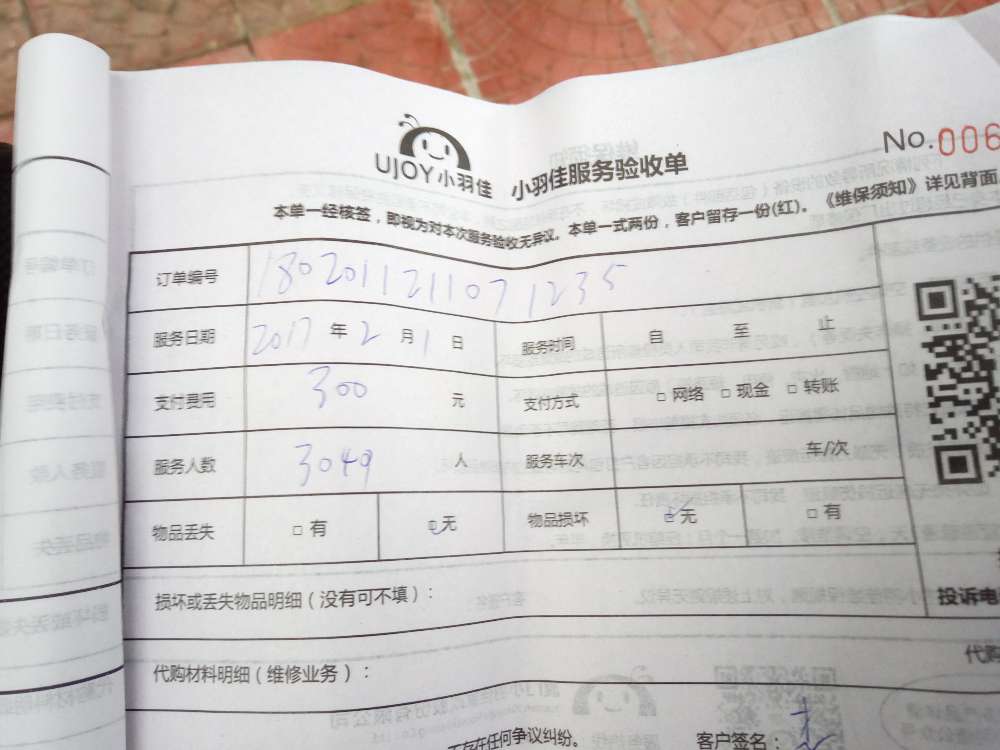 UJOY小羽佳 小羽佳服务验收单 No.006
本单一经核签，即视为对本次服务验收无异议。本单一式两份，客户留存一份(红)。《维保须知》详见背面。
订单编号 180201121107 1235
服务日期 2017年2月1日 服务时间 自 至 止
支付费用 300 元 支付方式 □网络 □现金 □转账
服务人数 3049 人 服务车次 车/次
物品丢失 □有 □无 物品损坏 □无 □有
损坏或丢失物品明细（没有可不填）： 投诉电
代购材料明细（维修业务）： 代购
不存在任何争议纠纷。 客户签名：